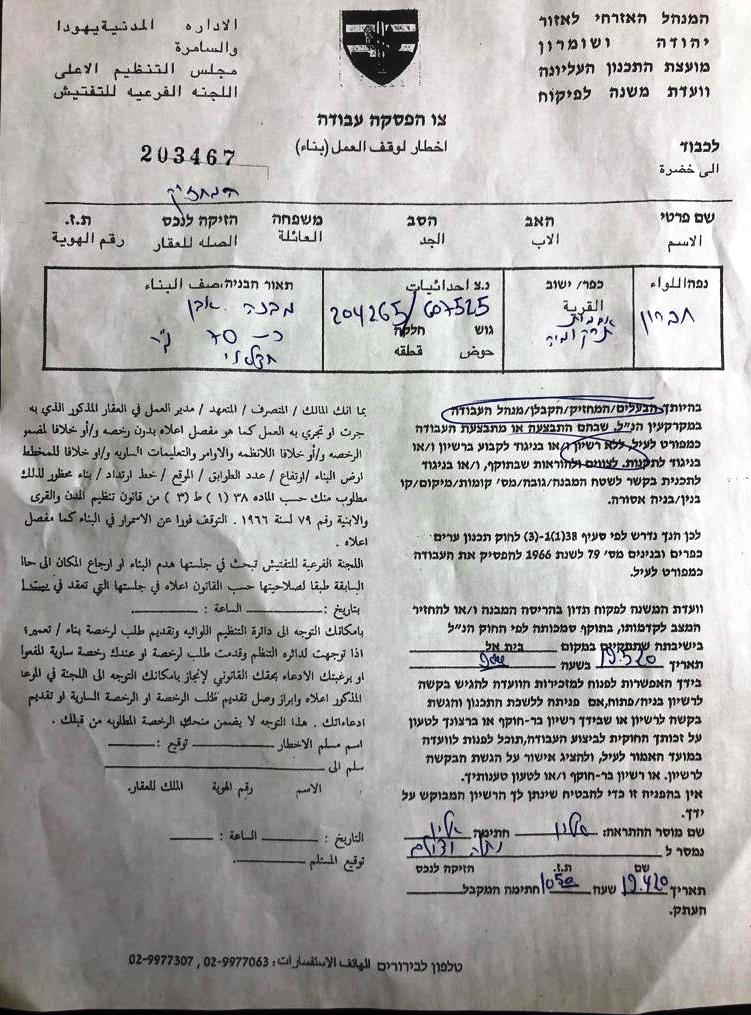 המנהל האזרחי לאזור
יהודה ושומרון
מועצת התכנון העליונה
וועדת משנה לפיקוח
الاداره المدنية يهودا
والسامرة
مجلس التنظيم الاعلى
اللجنه الفرعيه للتفتيش
צו הפסקה עבודה
اخطار لوقف العمل (بناء)
לכבוד
الى حضرة
203467
המחזיק
שם פרטי האב הסב משפחה הזיקה לנכס ת.ז.
الاسم الاب الجد العائلة الصله للعقار رقم الهوية
נפה اللواء
חברון
כפר/ ישוב
القرية
תרקומיה
נ.צ احداثيات
204265/607525
גוש חלקה
حوض قطقه
תאור הבניה/صف البناء
מבנה אבן
כ- 70 מ"ר
בהיותך הבעלים/המחזיק/הקבלן/מנהל העבודה
במקרקעין הנ"ל, שבהם התבצעה או מתבצעת העבודה
כמפורט לעיל, ללא רשיון ו/או בניגוד לקבוע ברשיון ו/או
בניגוד לתקנות, לצווים ולהוראות שבתוקף, ו/או בניגוד
לתכנית בקשר לשטח המבנה/גובה/מס' קומות/מיקום/קו
בנין/בניה אסורה.
לכן הנך נדרש לפי סעיף 38(1)-(3) לחוק תכנון ערים
כפרים ובנינים מס' 79 לשנת 1966 להפסיק את העבודה
כמפורט לעיל.
וועדת המשנה לפקוח תדון בהריסה המבנה ו/או להחזיר
המצב לקדמותו, בתוקף סמכותה לפי החוק הנ"ל
בישיבתה שתתקיים במקום בית אל
תאריך 19.5.20 בשעה 900
בידך האפשרות לפנות למזכירות הוועדה להגיש בקשה
לרשיון בניה/פתוח, אם פניתה ללשכת התכנון והגשת
בקשה לרשיון או שבידך רשיון בר-תוקף או ברצונך לטעון
על זכותך החוקית לביצוע העבודה, תוכל לפנות לוועדה
במועד האמור לעיל, ולהציג אישור על הגשת הבקשה
לרשיון. או רשיון בר-תוקף ו/או לטעון טענותיך.
אין בהפניה זו כדי להבטיח שינתן לך הרשיון המבוקש על
ידך.
שם מוסר ההתראה: חתימה
נמסר ל
שם ת.ז. הזיקה לנכס
תאריך 19.4.20 שעה 1050 חתימה המקבל
העתק.
بما انك المالك / المتصرف / المتعهد / مدير العمل في العقار المذكور الذي به
جرت او تجري به العمل كما هو مفصل اعلاه بدون رخصه و/أو خلافا لمضمو
الرخصه و/أو خلافا اللانظمه والاوامر والتعليمات الساريه و/او خلافا للمخطط
ارض البناء /ارتفاع / عدد الطوابق / الموقع / خط ارتداد / بناء محظور لذلك
مطلوب منك حسب الماده ٣٨ (١) ط (٣) من قانون تنظيم المدن والقرى
والابنية رقم ٧٩ لسنة ١٩٦٦ . التوقف فورا عن الاستمرار في البناء كما مفصل
اعلاه .
اللجنة الفرعية للتفتيش تبحث في جلستها هدم البناء او ارجاع المكان الى حال
السابقة طبقا لصلاحيتها حسب القانون اعلاه في جلستها التي تعقد في
بتاريخ : الساعة :
بامكانك التوجه الى دائرة التنظيم اللوائيه وتقديم طلب لرخصة بناء / تعمير؛
اذا توجهت لدائره التنظم وقدمت طلب لرخصة او عندك رخصة سارية المفعو
او برغبتك الادعاء بحقك القانوني لإنجاز بامكانك التوجه الى اللجنة في الموعا
المذكور اعلاه وابراز وصل تقديم طلب الرخصة او الرخصة السارية او تقديم
ادعاءاتك . هذا التوجه لا يضمن منحك الرخصة المطلوبه من قبلك .
اسم مسلم الاخطار توقيع :
سلم الى
الاسم رقم الهوية الملك للعقار.
التاريخ : الساعة :
توقيع المستلم
טלפון לבירורים الهاتف الاستفسارات : 02-9977063 , 02-9977307